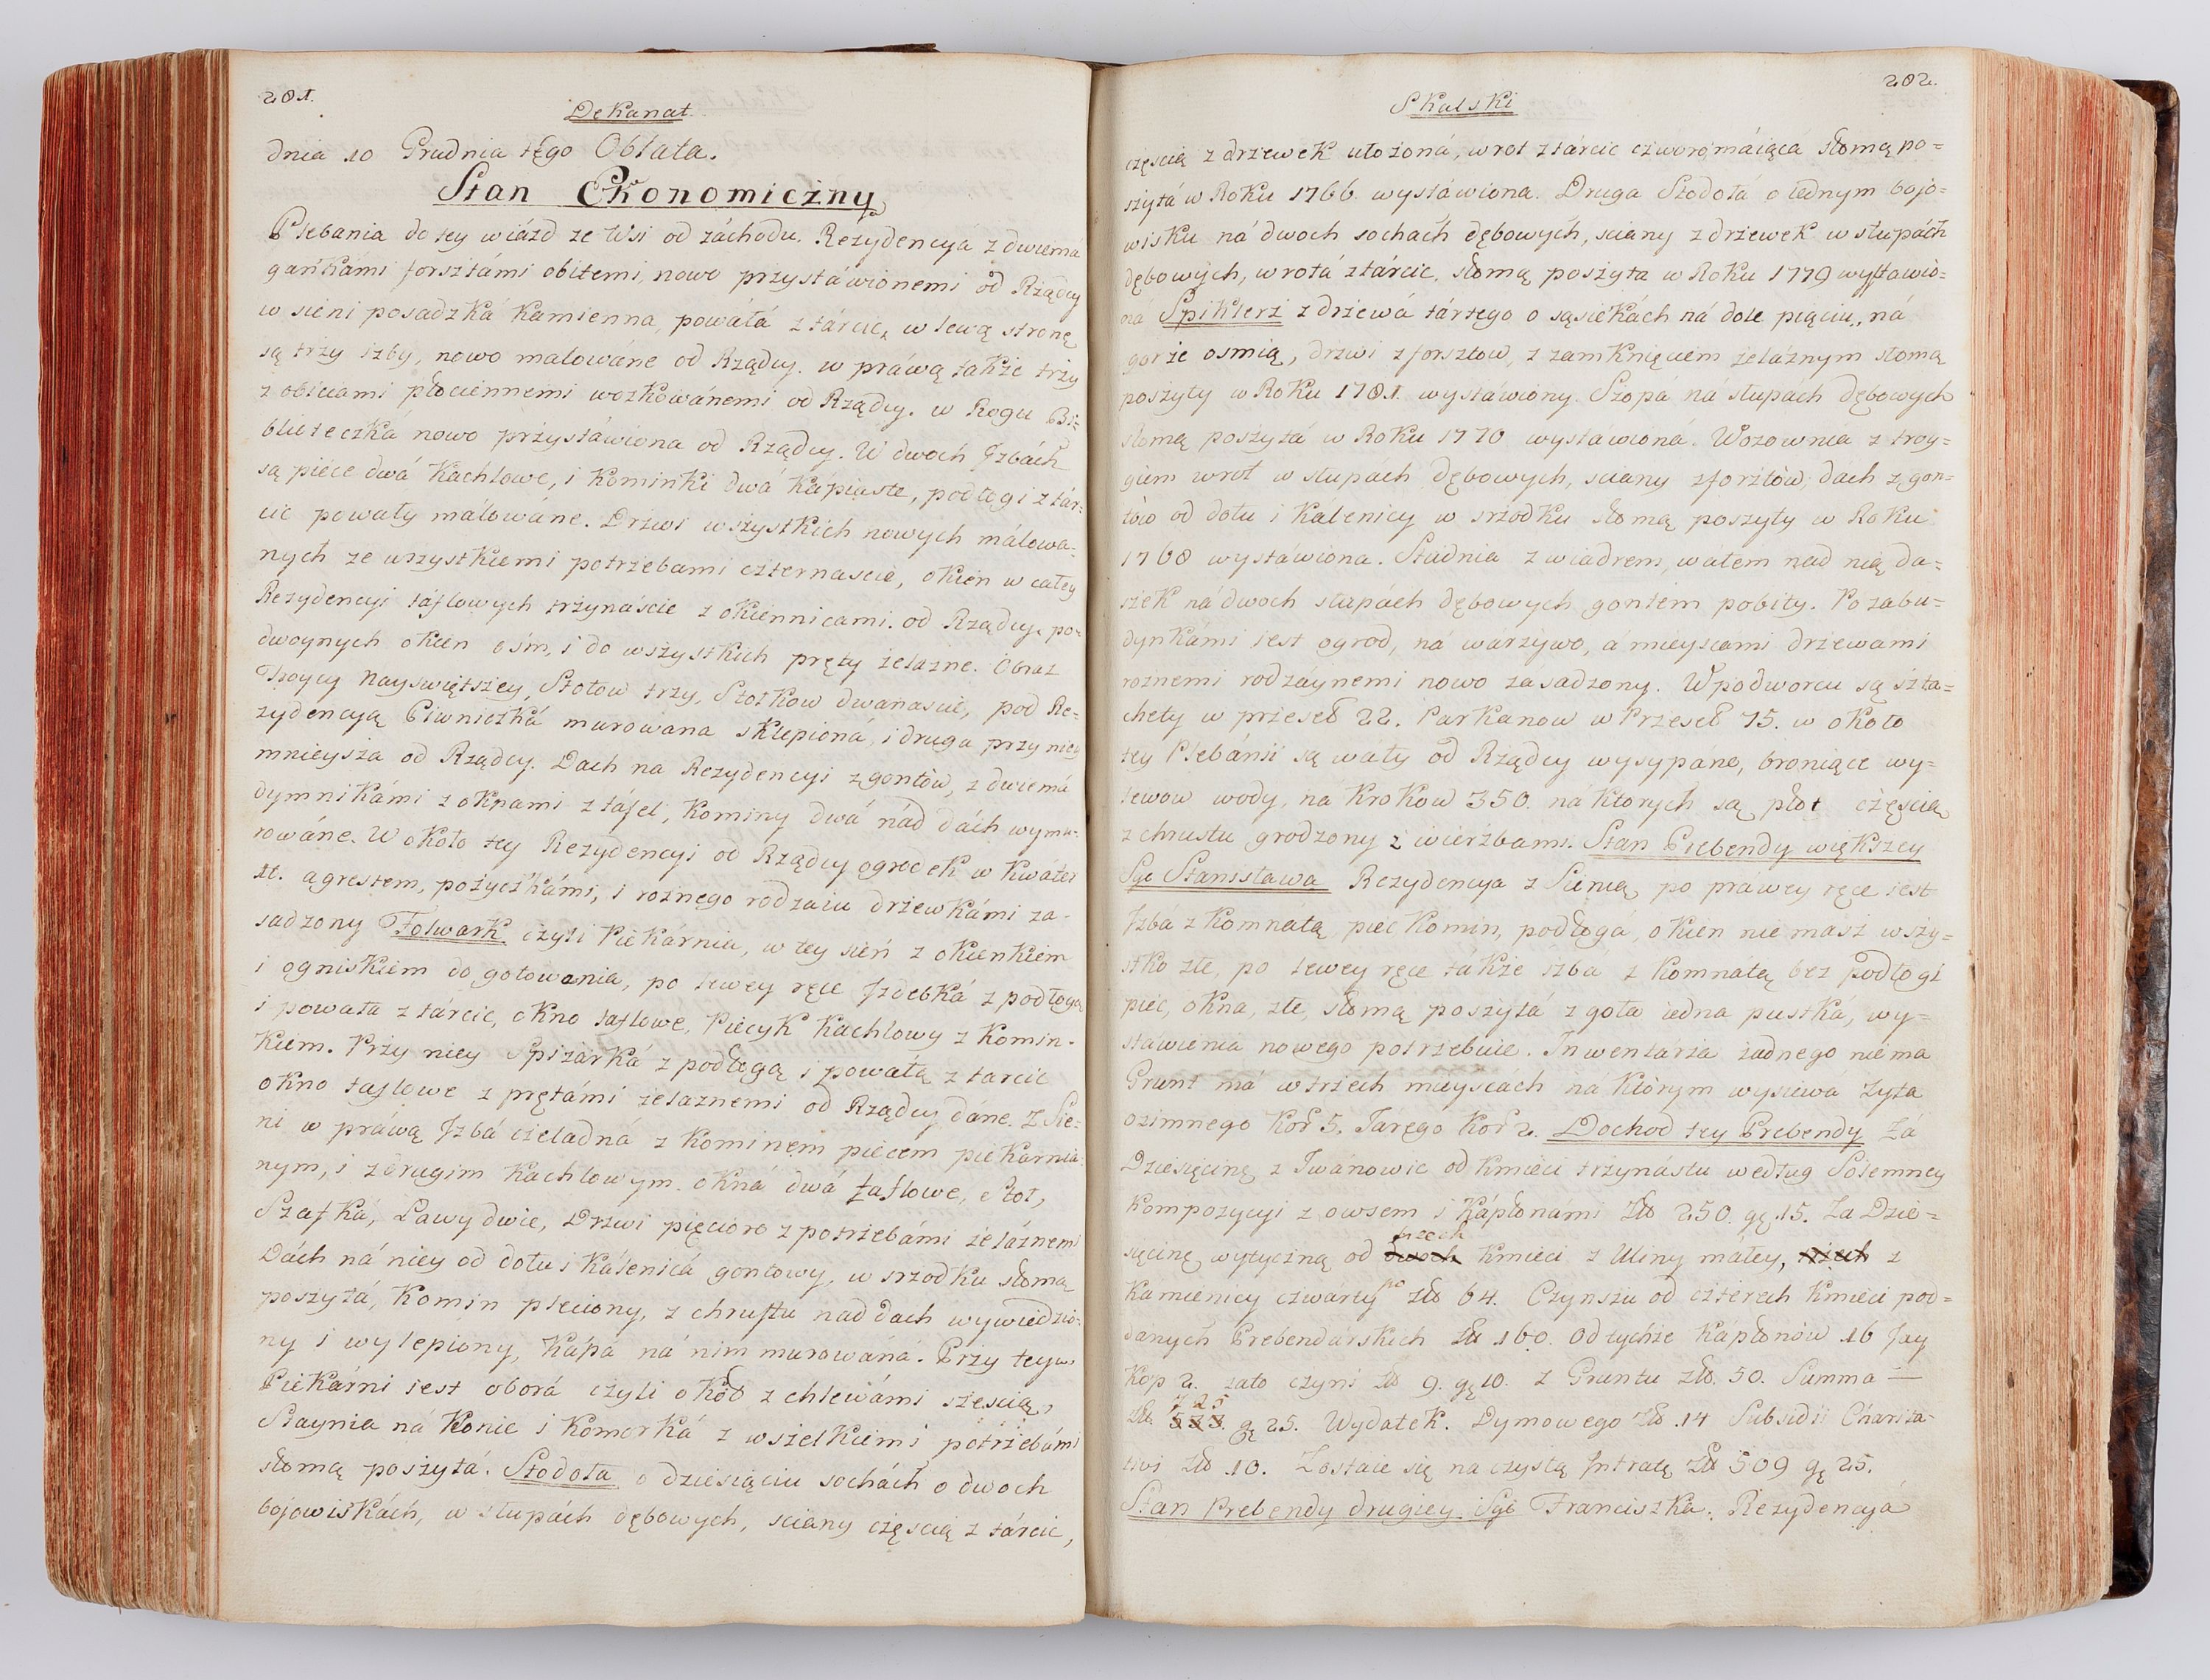 201.
Dekanat
dnia 10 Grudnia tego Oblata.
Stan Ekonomiczny
Plebania do tey wiázd ze Wsi od záchodu. Rezydencyá z dwiemá
gankámi forsztámi obitemi, nowo przystáwionemi od Rządcy
w sieni posadzká kamienna, powáłá z tárcic, w lewą stronę
są trzy izby, nowo malowane od Rządcy. w práwą także trzy
z obiciami płociennemi wozkowánemi od Rządcy. w Rogu Bi=
blioteczká nowo przystáwiona od Rządcy. W dwoch Izbách
są piece dwá Kachlowe, i Kominki dwá Kápiaste, podłogi z tár=
cic powały málowáne. Drzwi wszystkich nowych málowa=
nych ze wszystkiemi potrzebami czternascie, okien w całey
Rezydencyi táflowych trzynaście z okiennicami. od Rządcy po=
dwoynych okien ośm, i do wszystkich pręty żelazne. Obraz
Troycy Nayswiętszey, Stołow trzy, Stołkow dwanascie, pod Re=
zydencyą Piwniczká murowana sklepioná, i druga przy niey
mnieysza od Rządcy. Dach na Rezydencyi z gontów, z dwiemá
dymnikámi z oknami z táfel, Kominy dwá nád dách wymu=
rowáne. W około tey Rezydencyi od Rządcy ogrodek w Kwáter
11. agrestem, pożyczkámi, i rożnego rodzaiu drzewkámi za=
sadzony Folwark czyli Piekárnia, w tey sień z okienkiem
i ogniskiem do gotowania, po lewey ręce Izdebká z podłogą
i powała z tárcic, okno taflowe, Piecyk Kachlowy z Komin=
kiem. Przy niey Spiżarká z podłogą i powałą z tarcic
okno taflowe z prętámi żelaznemi od Rządcy dáne. Z Sie=
ni w práwą Izbá czeladná z Kominem piecem piekarnia
nym, i z drugim Kachlowym. okná dwá taflowe, Stoł,
Szafká, Ławy dwie, Drzwi pięcioro z potrzebámi żeláznemi
Dách ná niey od dołu i Kálenicá gontowy, w srzodku słomą
poszytá, Komin pleciony, z chrustu nad dach wywiedzio=
ny i wylepiony, Kápá ná nim murowáná. Przy teyże
Piekárni iest oborá czyli okoł z chlewámi sześcią,
Stáynia ná Konie i Komorká z wszelkiemi potrzebámi
słomą poszytá. Stodoła o dziesiąciu sochách o dwoch
bojowiskách, w słupách dębowych, sciany częscią z tárcic,
202.
Skalski
częscią z drzewek ułożoná, wrot z tárcic czworo máiącá słomą po=
szytá w Roku 1766 wystáwiona. Druga Stodołá o iednym bojo=
wisku ná dwoch sochach dębowych, sciany z drzewek w słupách
dębowych, wrotá z tárcic, słomą poszyta w Roku 1779 wystawio=
ná Spiklerz z drzewá tártego o sąsiekách ná dole pięciu, ná
gorze osmią, drzwi z forsztow, z zamknięciem żeláznym słomą
poszyty w Roku 1781. wystáwiony. Szopá ná słupách dębowych
słomą poszytá w Roku 1770 wystáwioná. Wozownia z troy=
giem wrot w słupach dębowych, sciany z forsztów, dach z gon=
tów od dołu i Kálenicy w srzodku słomą poszyty w Roku
1768 wystáwiona. Studnia z wiadrem, wałem nad nią da=
szek ná dwoch słupách dębowych gontem pobity. Po zabu=
dynkámi iest ogrod, ná wárzywo, á mieyscami drzewami
rożnemi rodzáynemi nowo zasadzony. W podworcu są szta=
chety w przeseł 22. Parkanow w Przeseł 15. w około
tey Plebánii są wały od Rządcy wysypane, broniące wy=
lewow wody, na Krokow 350. ná ktorych są płot częscią
z chrustu grodzony z wierzbami. Stan Prebendy większey
Sgo Stanisława Rezydencya z Sienią po prawey ręce iest
Izbá z Komnatą piec Komin, podłogá, okien niemasz wszy=
stko złe, po lewey ręce także izba z Komnatą bez podłogi
piec, okna, złe, słomą poszytá zgoła iedna pustká, wy=
stawienia nowego potrzebuie. Inwentárza żadnego niema
Grunt má w trzech mieyscách na Którym wysiewá Zyta
ozimnego Kor 5. Járego Kor 2. Dochod tey Prebendy Zá
Dziesięcinę z Iwánowic od Kmieci trzynástu według Solemney
Kompozycyi z owsem i Kápłonami Zł 250. gr. 15. Za Dzie=
trzech
sięcinę wytyczną od dwoch Kmieci z Uliny máłey, z
Kamienicy czwarty po zł 64. Czynszu od czterech Kmieci pod=
danych Prebendárskich Zł 160. Od tychże Kápłonów 16 Jay
Kop 2. zato czyni Zł 9. gr 10. z Gruntu zł. 50. Summa —
Zł. 525 gr 25. Wydatek. Dymowego Zł 14 Subsidii Charita=
tivi Zł 10. Zostaie się na czystą Intratę Zł 509 gr 25.
Stan Prebendy drugiey Sgo Franciszka. Rezydencyá